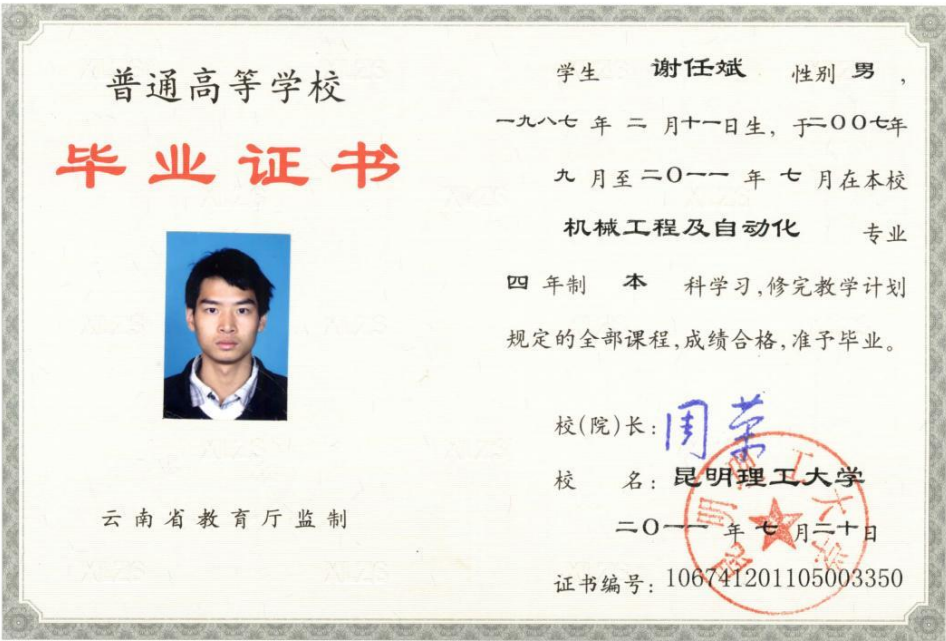 普通高等学校
毕业证书
云南省教育厅监制
学生 谢任斌 性别 男，
一九八七 年 二 月十一日生，于二〇〇七年
九 月至二〇一一 年 七 月在本校
机械工程及自动化 专业
四 年制 本 科学习，修完教学计划
规定的全部课程，成绩合格，准予毕业。
校（院）长：周荣
校 名：昆明理工大学
二〇一一 年 七 月二十日
证书编号：106741201105003350
昆明理工大学